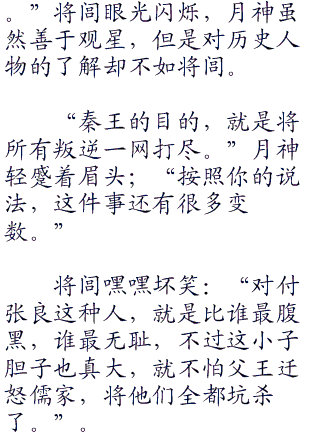 。”将闾眼光闪烁，月神虽
然善于观星，但是对历史人
物的了解却不如将闾。
“秦王的目的，就是将
所有叛逆一网打尽。”月神
轻蹙着眉头；“按照你的说
法，这件事还有很多变
数。”
将闾嘿嘿坏笑：“对付
张良这种人，就是比谁最腹
黑，谁最无耻，不过这小子
胆子也真大，就不怕父王迁
怒儒家，将他们全都坑杀
了。”。